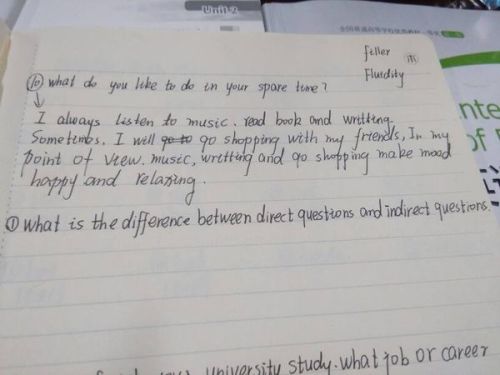 Unit 2
filler
Fluidity
⑩ what do you like to do in your spare time?
I always listen to music. read book and writting.
Sometimes. I will go to go shopping with my friends, In my
point of view. music, writting and go shopping make mood
happy and relaxing.
① what is the difference between direct questions and indirect questions.
university study. what job or career